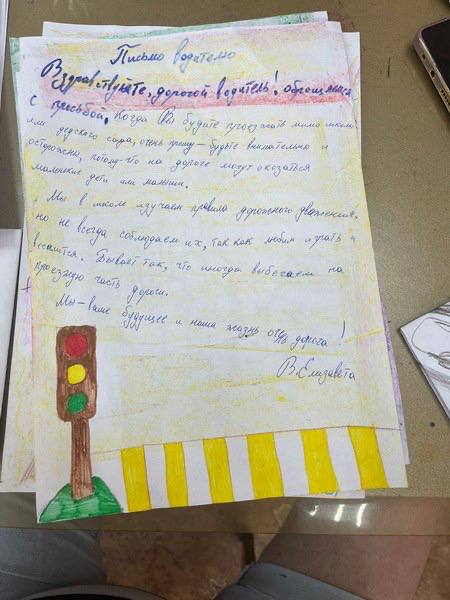 Письмо водителю
Вздравствуйте, дорогой водитель! обращаюсь
с просьбой. Когда Вы будите проезжать мимо школы
или децкого сада, очень прошу – будьте внимательно и
осторожны, потому-что на дороге могут оказаться
маленькие дети или малыши.
Мы в школе изучаем правила дорожного движения,
но не всегда соблюдаем их, так как любим играть и
веселится. Бывает так, что иногда выбегаем на
проезжую часть дороги.
Мы – ваше будущее и наша жизнь очнь дорога!
В. Елизавета